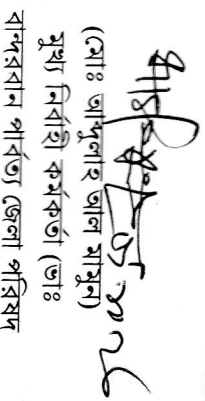 (মোঃ আব্দুল্লাহ আল মামুন)
মুখ্য নির্বাহী কর্মকর্তা (ভাঃ
বান্দরবান পার্বত্য জেলা পরিষদ